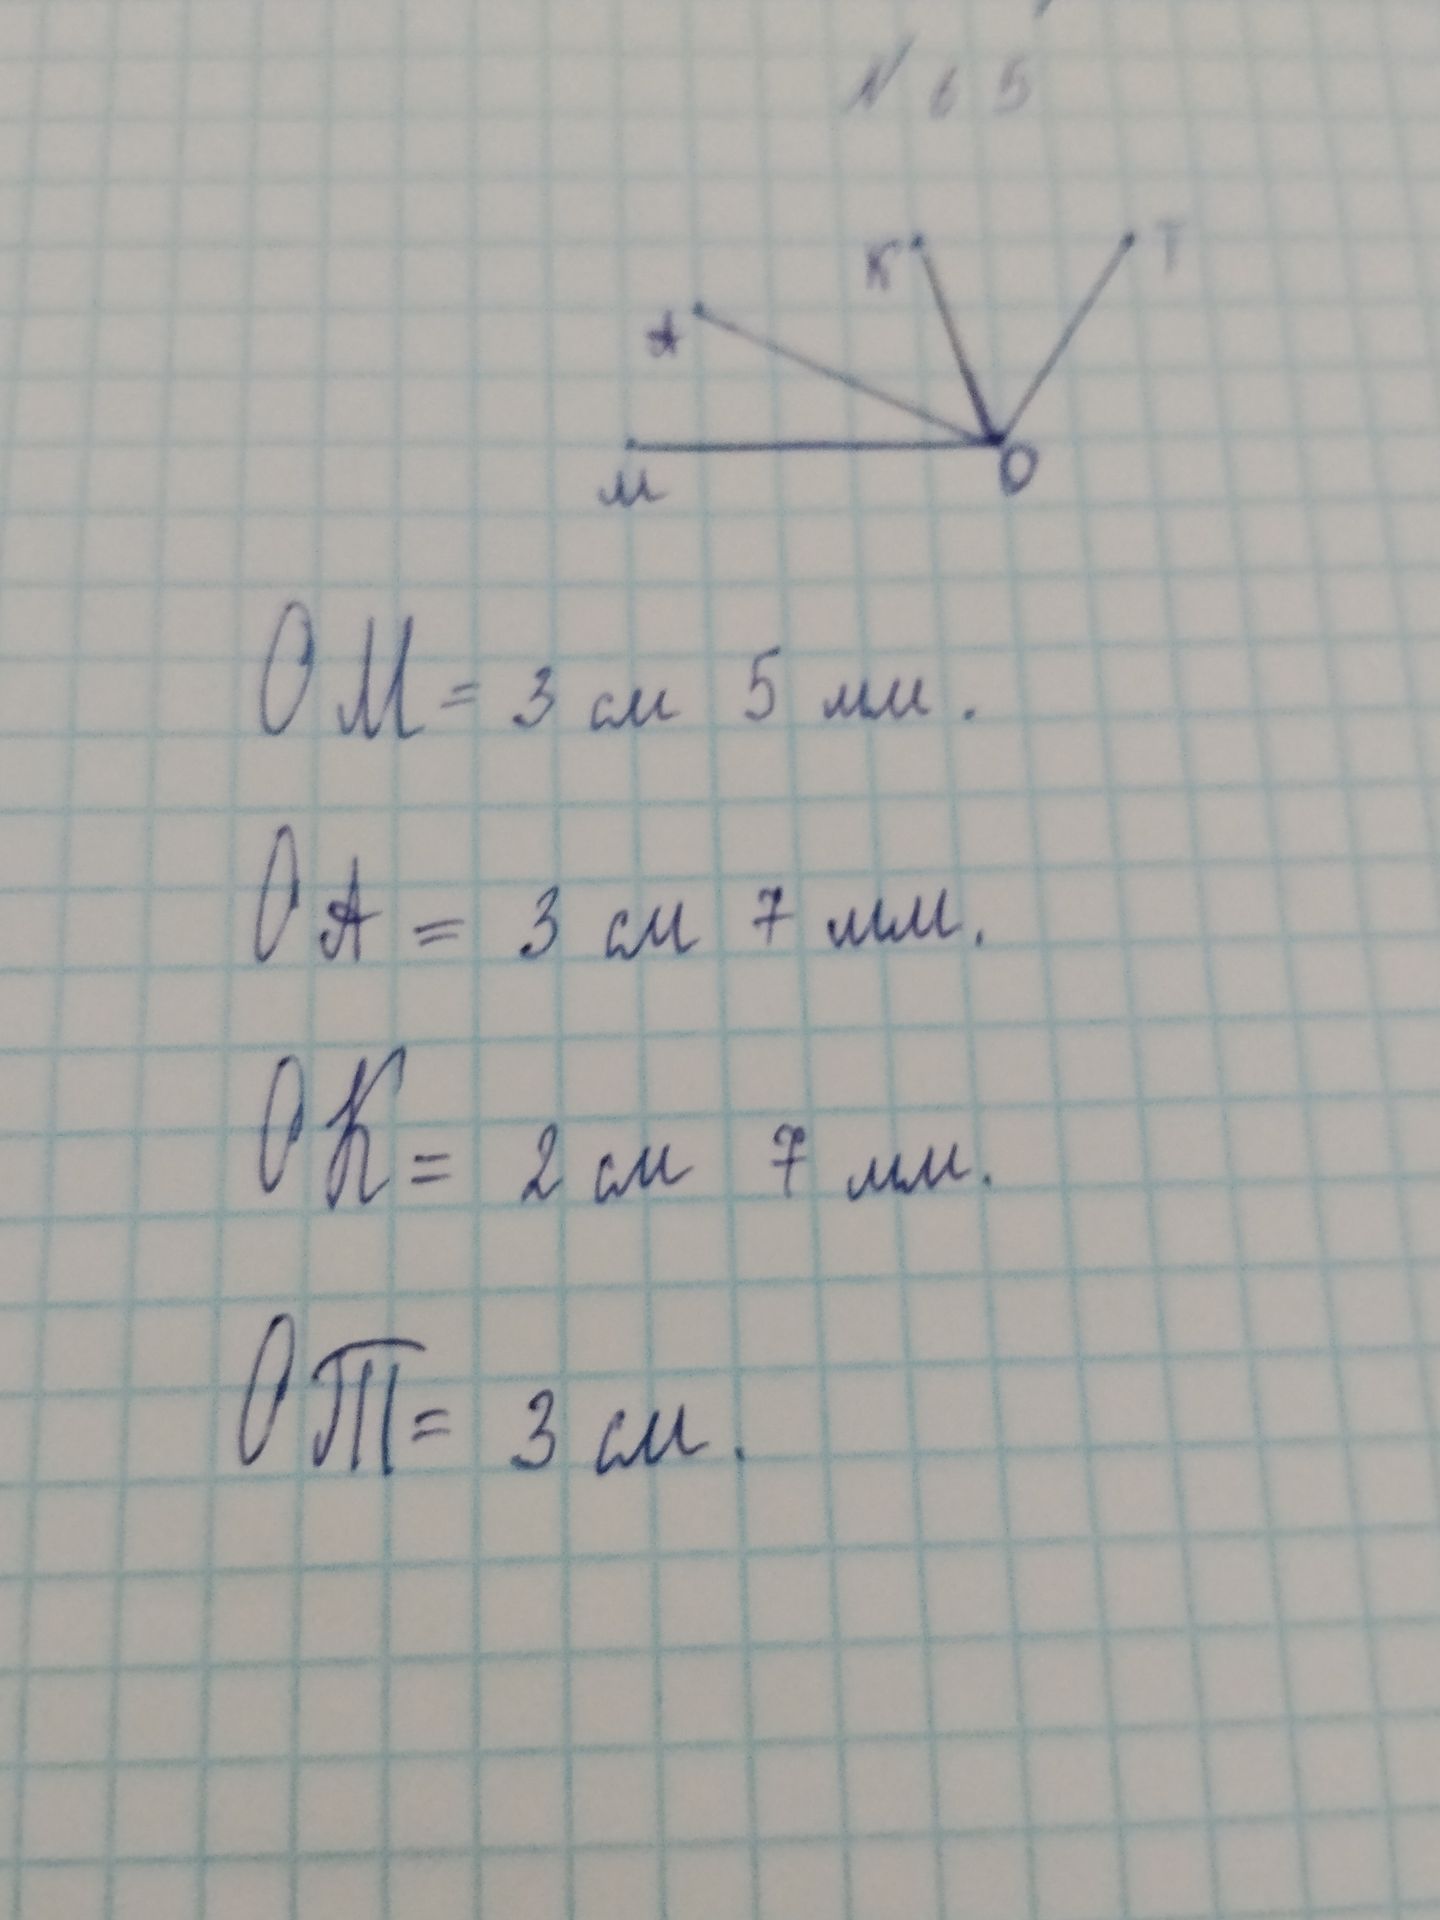 N 65
К Т
А
М О
ОМ = 3 см 5 мм.
ОА = 3 см 7 мм.
ОК = 2 см 7 мм.
ОТ = 3 см.